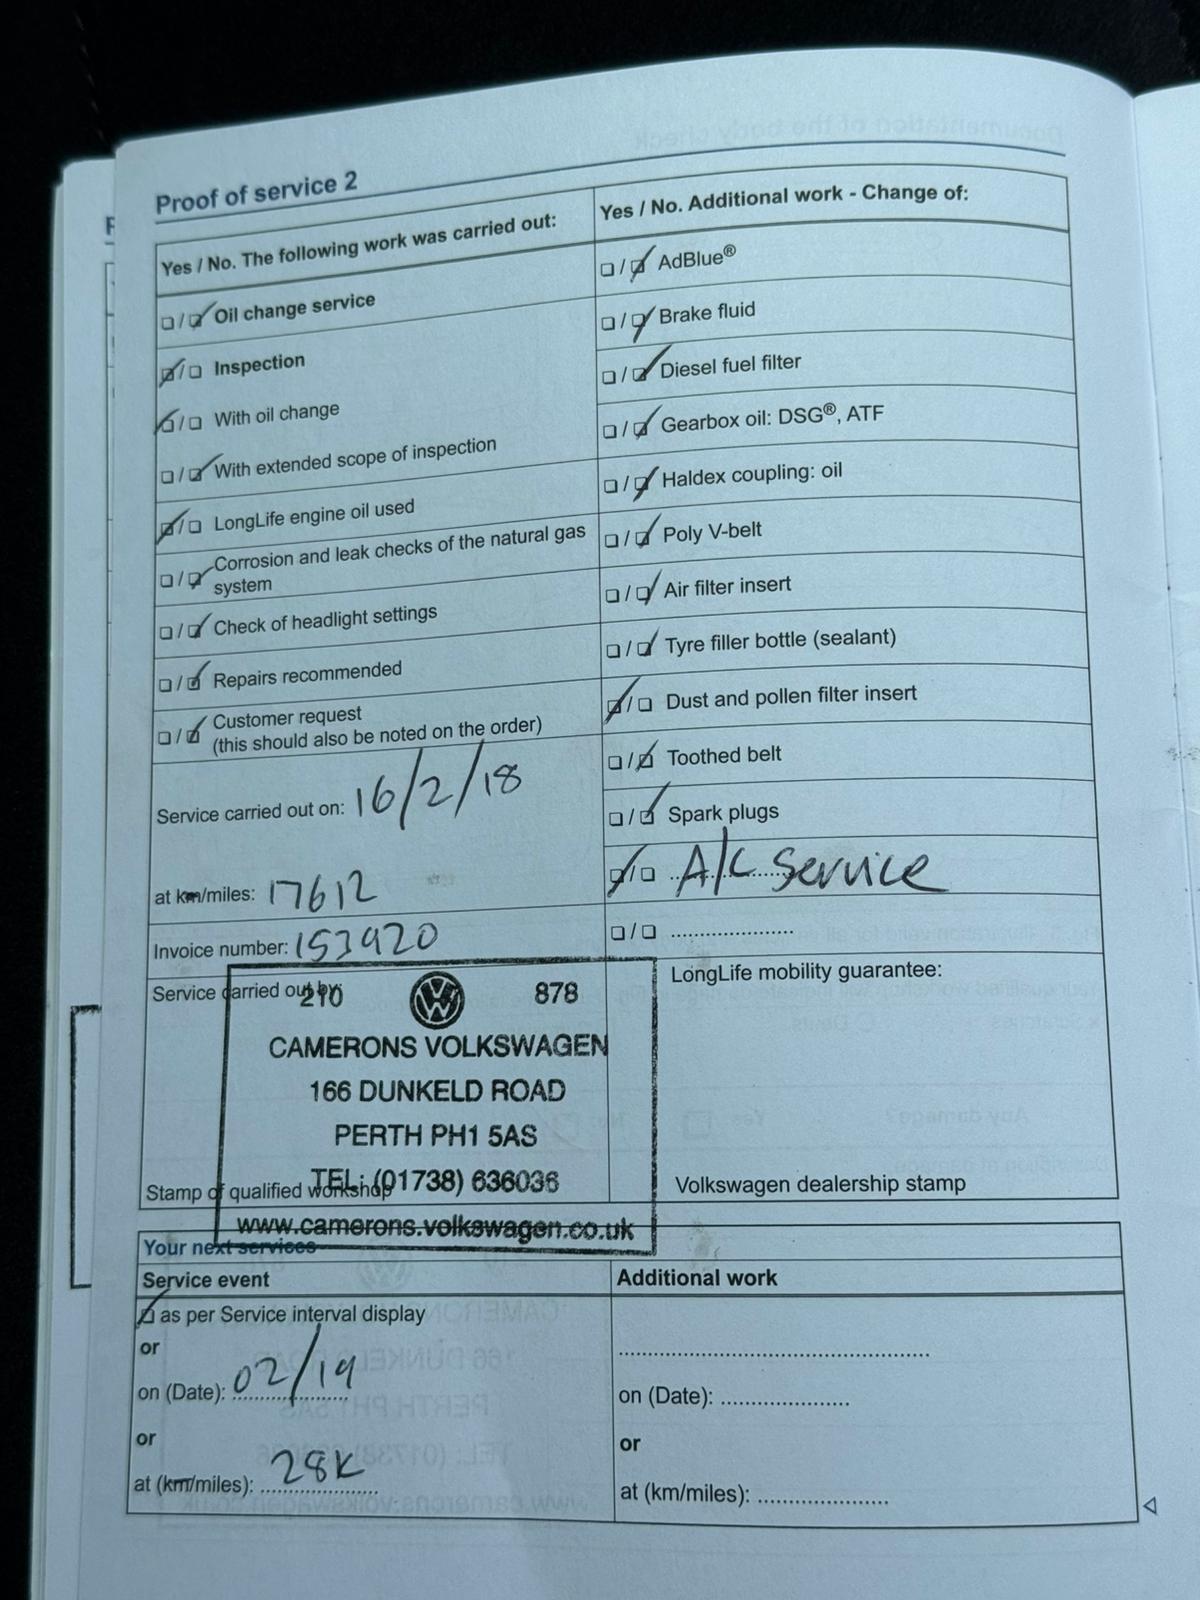 Proof of service 2
Yes / No. The following work was carried out:
❏ / ☑ Oil change service
☑ / ❏ Inspection
☑ / ❏ With oil change
❏ / ☑ With extended scope of inspection
☑ / ❏ LongLife engine oil used
❏ / ☑ Corrosion and leak checks of the natural gas
system
❏ / ☑ Check of headlight settings
❏ / ☑ Repairs recommended
❏ / ☑ Customer request
(this should also be noted on the order)
Service carried out on: 16/2/18
at km/miles: 17612
Invoice number: 153920
Service carried out by:
Yes / No. Additional work - Change of:
❏ / ☑ AdBlue®
❏ / ☑ Brake fluid
❏ / ☑ Diesel fuel filter
❏ / ☑ Gearbox oil: DSG®, ATF
❏ / ☑ Haldex coupling: oil
❏ / ☑ Poly V-belt
❏ / ☑ Air filter insert
❏ / ☑ Tyre filler bottle (sealant)
☑ / ❏ Dust and pollen filter insert
❏ / ☑ Toothed belt
❏ / ☑ Spark plugs
☑ / ❏ A/C Service
❏ / ❏ ....................
LongLife mobility guarantee:
210 878
CAMERONS VOLKSWAGEN
166 DUNKELD ROAD
PERTH PH1 5AS
TEL: (01738) 636036
www.camerons.volkswagen.co.uk
Stamp of qualified workshop
Volkswagen dealership stamp
Your next services
Service event
☑ as per Service interval display
or
on (Date): 02/19
or
at (km/miles): 28K
Additional work
....................
on (Date): ....................
or
at (km/miles): ....................